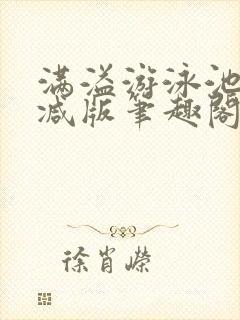 满溢游泳池
减版笔趣阁
徐肖嵘